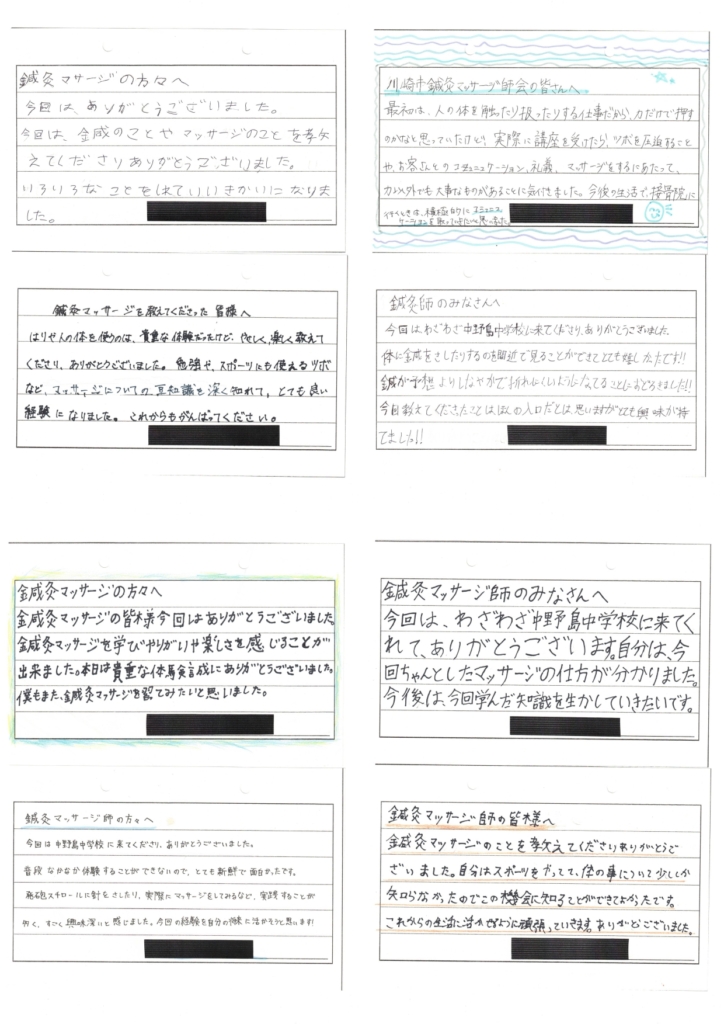 鍼灸マッサージの方々へ
今回は、ありがとうございました。
今回は、金咸のことや マッサージのこと を孝攵
えてくださりありがとうございました。
いろいろな ことを知れていいきかいになりま
した。
川崎市鍼灸マッサージ師会の皆さんへ。
最初は、人の体を触ったり扱ったりする仕事だから、力だけで押す
のかなと思っていたけど、実際に講座を受けたら、ツボを圧迫すること
や、お客さんとのコミュニケーション、礼義、マッサージをするにあたって、
力以外でも大事なものがあることに気付きました。今後の生活で、接骨院に
行くときは、積極的にコミュニ
ケーションを取っていきたいと思いました。
鍼灸マッサージを教えてくださった皆様へ
はりや人の体を使うのは、貴重な体験だったけど、やさしく、楽しく教えて
くださり、ありがとうございました。勉強や、スポーツにも使えるツボ
など、マッサージについての豆知識を深く知れて、とても良い
経験になりました。これからもがんばってください。
鍼灸師のみなさんへ
今回はわざわざ中野島中学校に来てくださり、ありがとうございました。
体に金咸をさしたりするのを間近で見ることができてとても嬉しかったです!!
鍼が予想よりしなやかで折れにくいようになってることにおどろきました!!
今日教えてくださたことはほんの入口だとは思いますがとても興味が持
てました!!
鍼灸マッサージの方々へ
金咸灸マッサージの皆様今回はありがとうございました。
金咸灸マッサージを学びやりがいや楽しさを感じることが
出来ました。本日は貴重な体験言成にありがとうございました。
僕もまた、金咸灸マッサージを習てみたいと思いました。
金咸灸マッサージ師のみなさんへ
今回は、わざわざ中野島中学校に来てく
れて、ありがとうございます。自分は、今
回ちゃんとしたマッサージの仕方が分かりました。
今後は、今回学んだ知識を生かしていきたいです。
鍼灸マッサージ師の方々へ
今回は中野島中学校に来てくださり、ありがとうございました。
普段なかなか体験することができないので、とても新鮮で面白かったです。
発砲スチロールに針をさしたり、実際にマッサージをしてみるなど、実践することが
多く、すごく興味深いと感じました。今回の経験を自分の将来に活かそうと思います!
鍼灸マッサージ師の皆様へ
金咸灸マッサージのことを孝攵えてくださいありがとうご
ざいました。自分はスポーツをやってて、体の事について少ししか
知らなかったのでこの機会に知ることができてよかったです。
これからの生活に活かせるように頑張っていきます。ありがとございました。